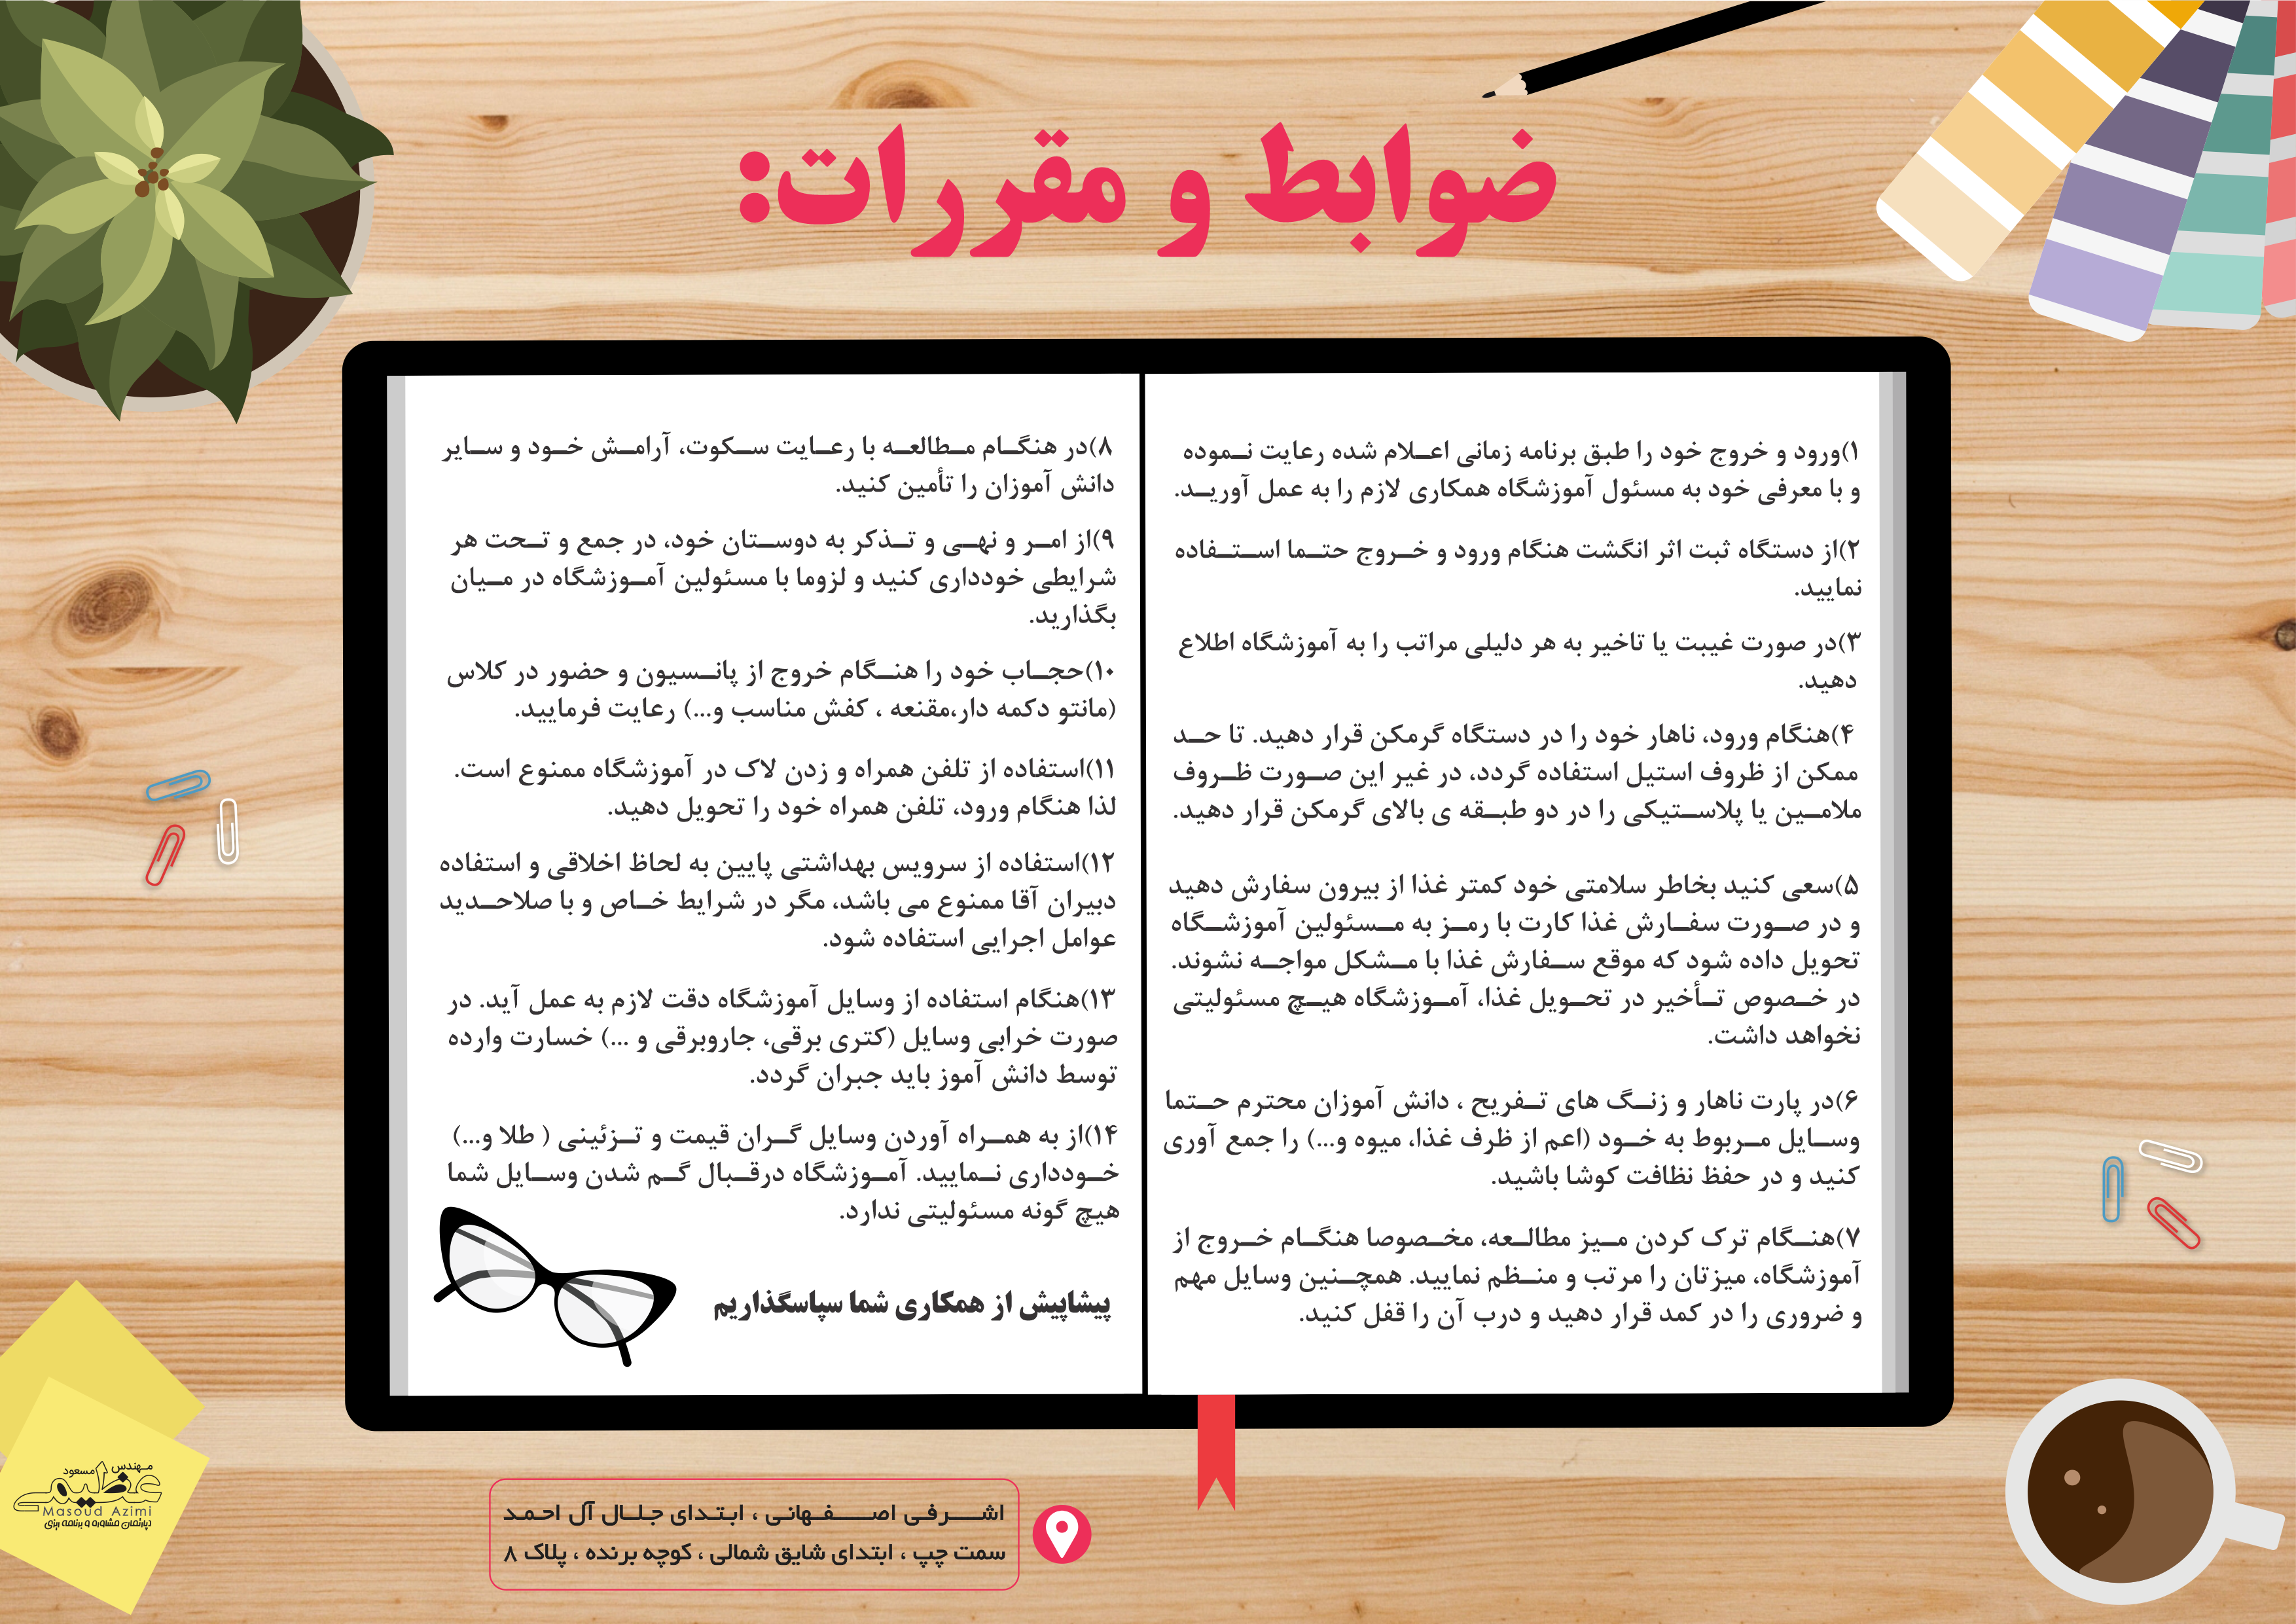 ضوابط و مقررات:
۱)ورود و خروج خود را طبق برنامه زمانی اعلام شده رعایت نموده
و با معرفی خود به مسئول آموزشگاه همکاری لازم را به عمل آورید.
۲)از دستگاه ثبت اثر انگشت هنگام ورود و خروج حتما استفاده
نمایید.
۳)در صورت غیبت یا تاخیر به هر دلیلی مراتب را به آموزشگاه اطلاع
دهید.
۴)هنگام ورود، ناهار خود را در دستگاه گرمکن قرار دهید. تا حد
ممکن از ظروف استیل استفاده گردد، در غیر این صورت ظروف
ملامین یا پلاستیکی را در دو طبقه ی بالای گرمکن قرار دهید.
۵)سعی کنید بخاطر سلامتی خود کمتر غذا از بیرون سفارش دهید
و در صورت سفارش غذا کارت با رمز به مسئولین آموزشگاه
تحویل داده شود که موقع سفارش غذا با مشکل مواجه نشوند.
در خصوص تأخیر در تحویل غذا، آموزشگاه هیچ مسئولیتی
نخواهد داشت.
۶)در پارت ناهار و زنگ های تفریح ، دانش آموزان محترم حتما
وسایل مربوط به خود (اعم از ظرف غذا، میوه و...) را جمع آوری
کنید و در حفظ نظافت کوشا باشید.
۷)هنگام ترک کردن میز مطالعه، مخصوصا هنگام خروج از
آموزشگاه، میزتان را مرتب و منظم نمایید. همچنین وسایل مهم
و ضروری را در کمد قرار دهید و درب آن را قفل کنید.
۸)در هنگام مطالعه با رعایت سکوت، آرامش خود و سایر
دانش آموزان را تأمین کنید.
۹)از امر و نهی و تذکر به دوستان خود، در جمع و تحت هر
شرایطی خودداری کنید و لزوما با مسئولین آموزشگاه در میان
بگذارید.
۱۰)حجاب خود را هنگام خروج از پانسیون و حضور در کلاس
(مانتو دکمه دار،مقنعه ، کفش مناسب و...) رعایت فرمایید.
۱۱)استفاده از تلفن همراه و زدن لاک در آموزشگاه ممنوع است.
لذا هنگام ورود، تلفن همراه خود را تحویل دهید.
۱۲)استفاده از سرویس بهداشتی پایین به لحاظ اخلاقی و استفاده
دبیران آقا ممنوع می باشد، مگر در شرایط خاص و با صلاحدید
عوامل اجرایی استفاده شود.
۱۳)هنگام استفاده از وسایل آموزشگاه دقت لازم به عمل آید. در
صورت خرابی وسایل (کتری برقی، جاروبرقی و ...) خسارت وارده
توسط دانش آموز باید جبران گردد.
۱۴)از به همراه آوردن وسایل گران قیمت و تزئینی ( طلا و...)
خودداری نمایید. آموزشگاه درقبال گم شدن وسایل شما
هیچ گونه مسئولیتی ندارد.
پیشاپیش از همکاری شما سپاسگذاریم
مهندس مسعود
عظیمی
Masoud Azimi
دپارتمان مشاوره و برنامه ریزی
اشرفی اصفهانی ، ابتدای جلال آل احمد
سمت چپ ، ابتدای شایق شمالی ، کوچه برنده ، پلاک ۸